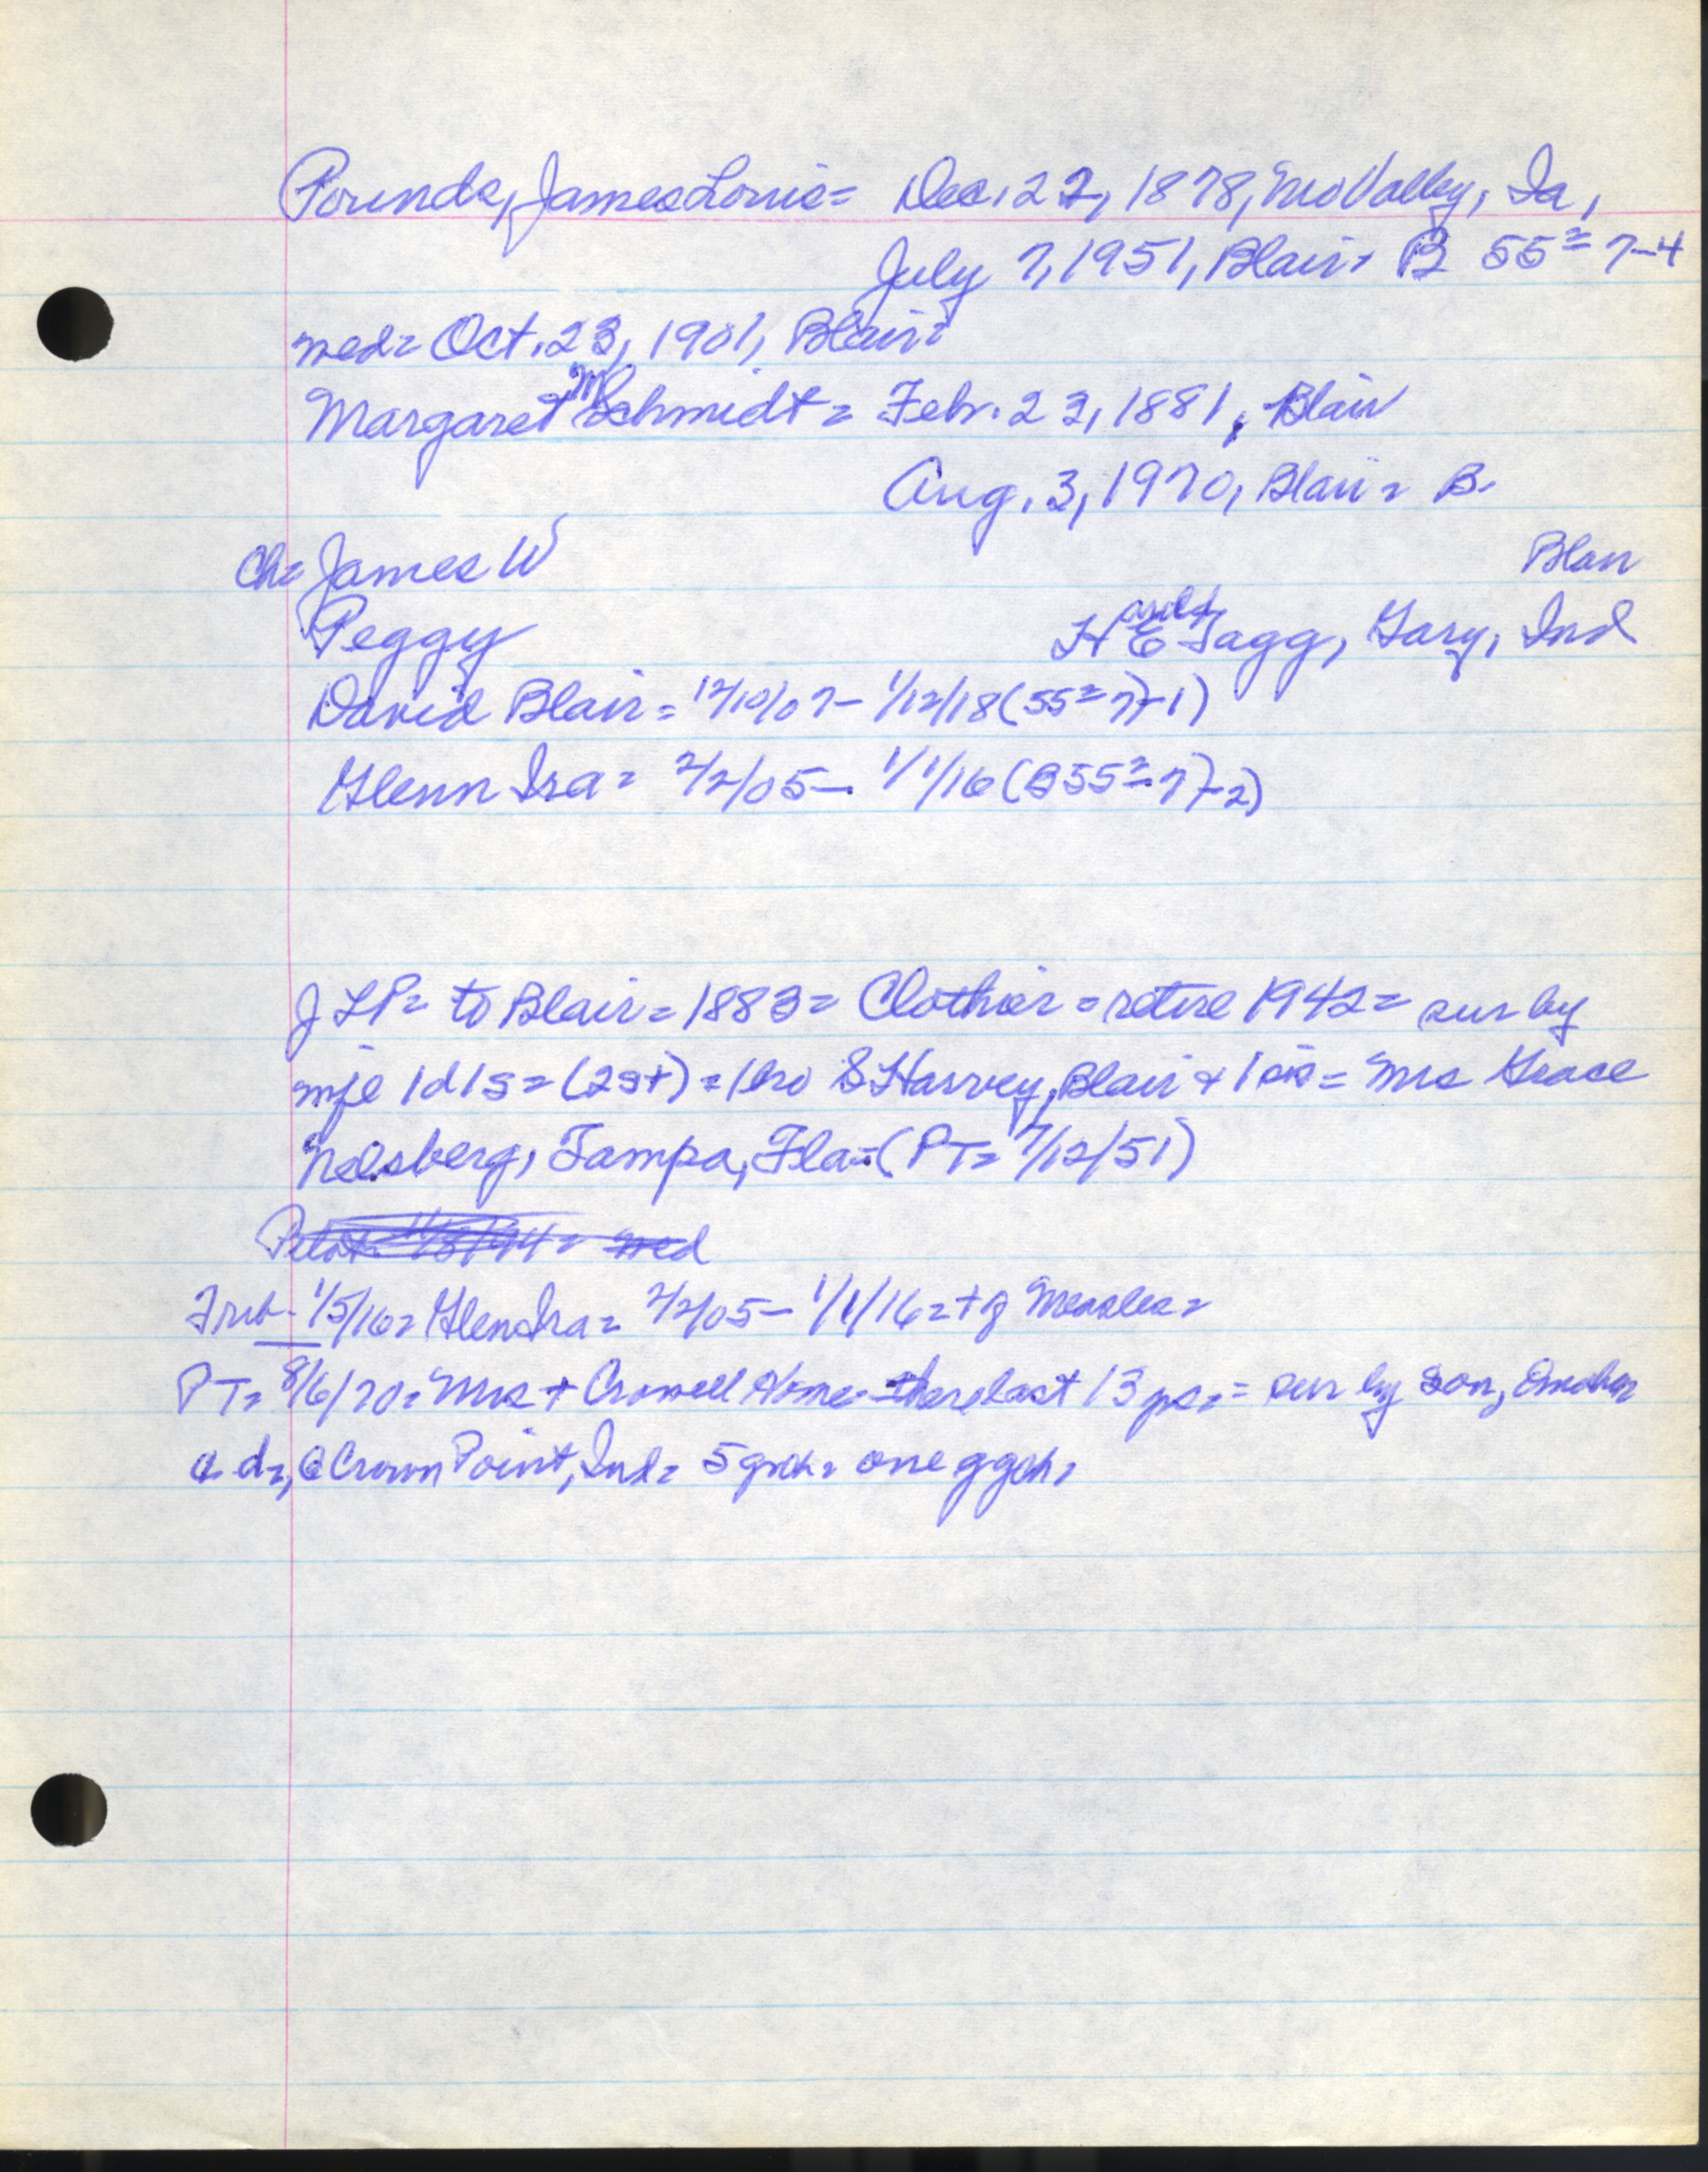 Pounds, James Louis= Dec. 22, 1878, Mo Valley, Ia,
July 7, 1951, Blair= B 55= 7-4
med= Oct. 23, 1901, Blair=
Margaret M Schmidt= Feb. 23, 1881, Blair
Aug. 3, 1970, Blair= B.
Ch= James W
Blair
Peggy H arold E Tagg, Gary, Ind
David Blair= 12/10/07- 1/12/18 (55=7)-1)
Glenn Ira= 2/2/05- 1/1/16 (B55=7)-2)
J L P= to Blair= 1883= Clothier= retire 1942= sur by
wife 1d 1s= (2s+)= 1bro S Harvey, Blair & 1 sis= Mrs Grace
Nelsberg, Tampa, Fla=(PT= 7/12/51)
Trib- 1/5/16= Glen Ira= 2/2/05- 1/1/16=+ of Measles=
PT= 8/6/70= Mrs + Crowell Home= there last 13 yrs.= sur by son, Omaha
& d=, @ Crown Point, Ind= 5 grch= one ggch=